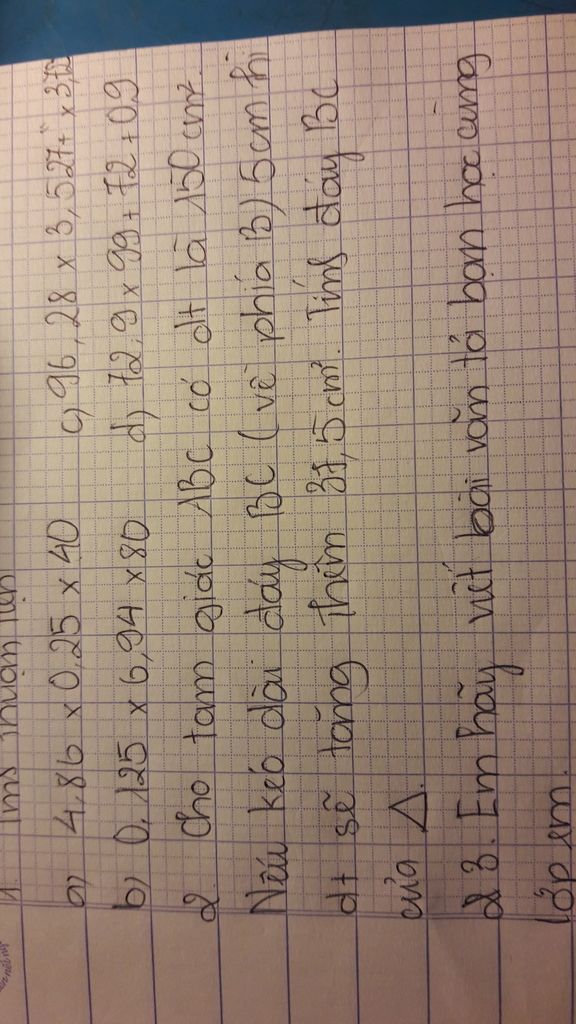 1. Tính thuận tiện
a) 4,86 x 0,25 x 40 c) 96,28 x 3,527 + x 3,72
b) 0,125 x 6,94 x 80 d) 72,9 x 99 + 72 + 0,9
2. Cho tam giác ABC có dt là 150 cm².
Nếu kéo dài đáy BC (về phía B) 5cm thì
dt sẽ tăng thêm 37,5 cm². Tính đáy BC
của △.
3. Em hãy viết bài văn tả bạn học cùng
lớp em.